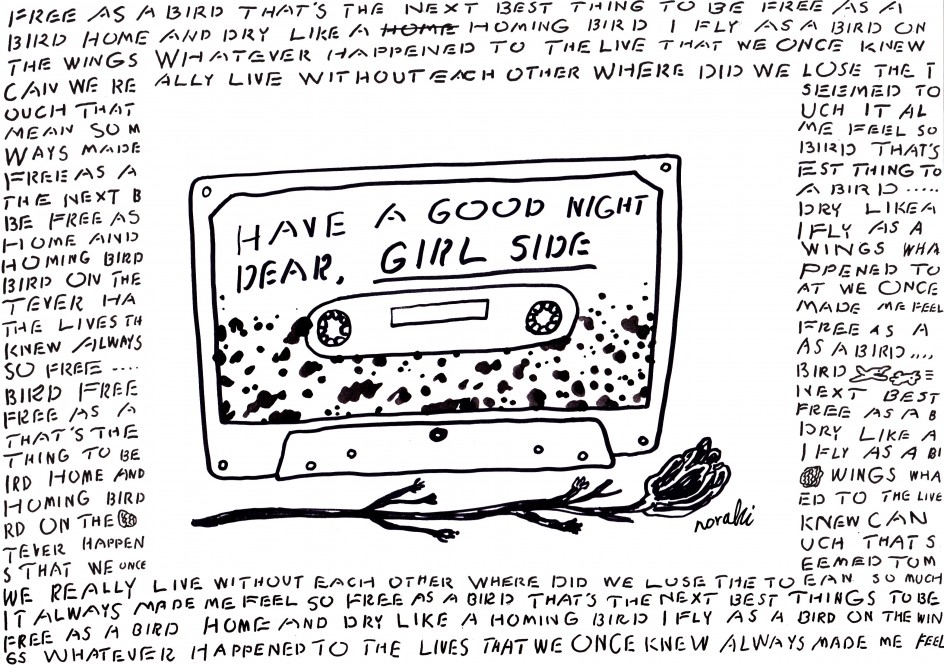 FREE AS A BIRD THAT'S THE NEXT BEST THING TO BE FREE AS A
BIRD HOME AND DRY LIKE A HOME HOMING BIRD I FLY AS A BIRD ON
THE WINGS WHATEVER HAPPENED TO THE LIVE THAT WE ONCE KNEW
CAN WE RE ALLY LIVE WITHOUT EACH OTHER WHERE DID WE LOSE THE T
OUCH THAT SEEMED TO
MEAN SO M UCH IT AL
WAYS MADE ME FEEL SO
FREE AS A BIRD THAT'S
THE NEXT B EST THING TO
BE FREE AS A BIRD .....
HOME AND DRY LIKE A
HOMING BIRD I FLY AS A
BIRD ON THE WINGS WHA
TEVER HA PPENED TO
THE LIVES TH AT WE ONCE
KNEW ALWAYS MADE ME FEEL
SO FREE .... FREE AS A
BIRD FREE AS A BIRD ....
FREE AS A BIRD
THAT'S THE NEXT BEST
THING TO BE FREE AS A B
IRD HOME AND DRY LIKE A
HOMING BIRD I FLY AS A BI
RD ON THE WINGS WHA
TEVER HAPPEN ED TO THE LIVE
S THAT WE ONCE KNEW CAN
HAVE A GOOD NIGHT
DEAR, GIRL SIDE
noraki
UCH THAT S
EEMED TO M
WE REALLY LIVE WITHOUT EACH OTHER WHERE DID WE LOSE THE TO EAN SO MUCH
IT ALWAYS MADE ME FEEL SO FREE AS A BIRD THAT'S THE NEXT BEST THINGS TO BE
FREE AS A BIRD HOME AND DRY LIKE A HOMING BIRD I FLY AS A BIRD ON THE WIN
GS WHATEVER HAPPENED TO THE LIVES THAT WE ONCE KNEW ALWAYS MADE ME FEEL